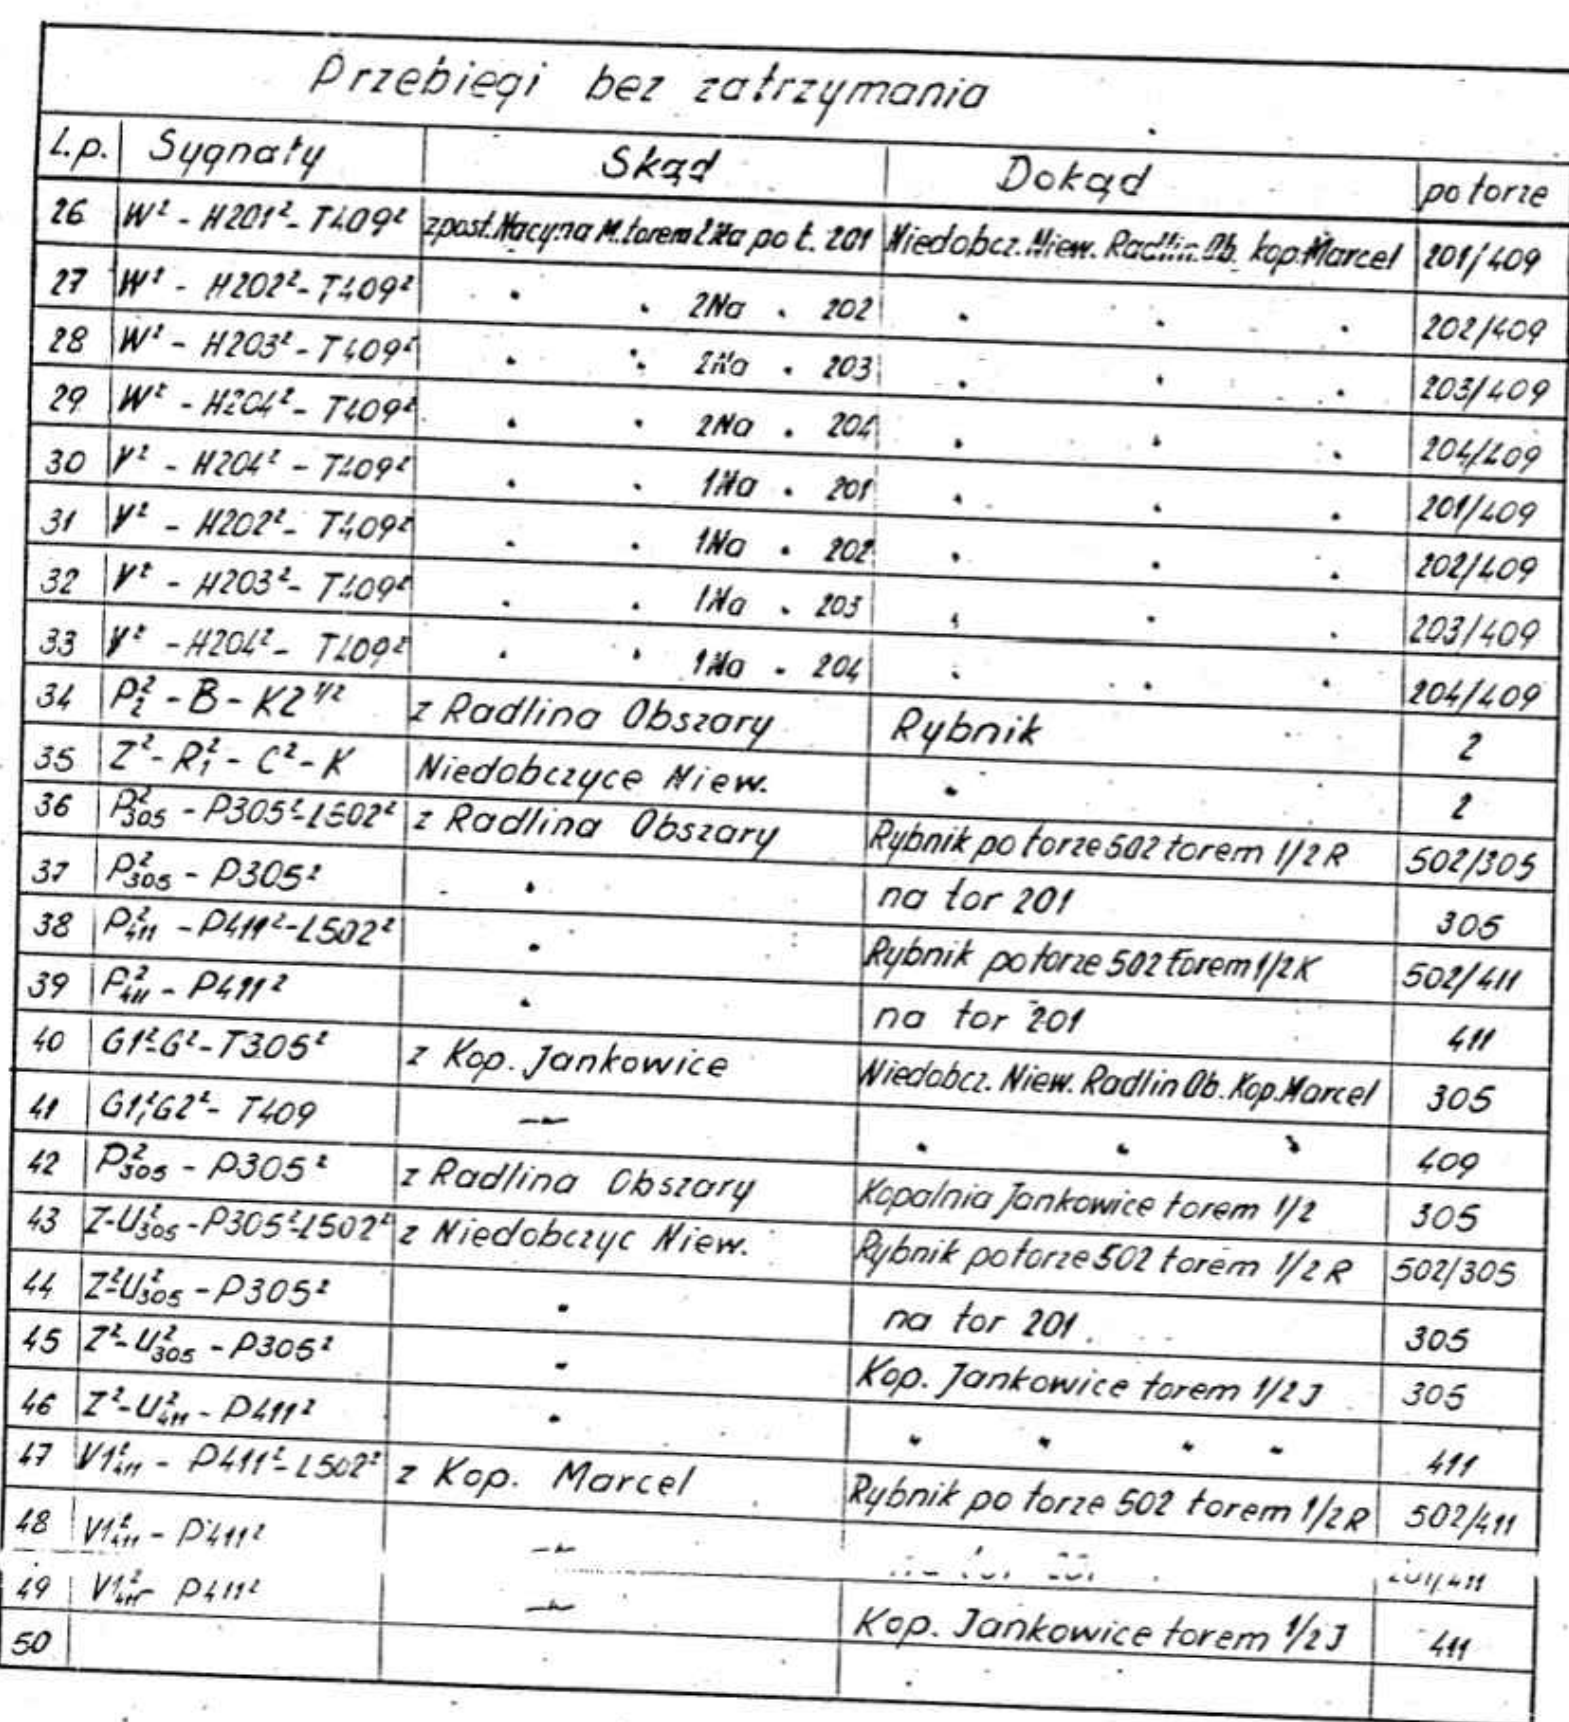 Przebiegi bez zatrzymania
L.p. Sygnały Skąd Dokąd po torze
26 W² - H201² - T409² z post. Nacyna M. torem 2Na po t. 201 Niedobcz. Niew. Radlin Ob. kop. Marcel 201/409
27 W² - H202² - T409² " " 2Na " 202 " " " 202/409
28 W² - H203² - T409² " " 2Na " 203 " " " 203/409
29 W² - H204² - T409² " " 2Na " 204 " " " 204/409
30 V² - H204² - T409² " " 1Na " 201 " " " 201/409
31 V² - H202² - T409² " " 1Na " 202 " " " 202/409
32 V² - H203² - T409² " " 1Na " 203 " " " 203/409
33 V² - H204² - T409² " " 1Na " 204 " " " 204/409
34 P₂² - B - K2 ¹/² z Radlina Obszary Rybnik 2
35 Z² - R₁² - C² - K Niedobczyce Niew. " 2
36 P²₃₀₅ - P305² - L502² z Radlina Obszary Rybnik po torze 502 torem 1/2 R 502/305
37 P²₃₀₅ - P305² " na tor 201 305
38 P²₄₁₁ - P411² - L502² " Rybnik po torze 502 torem 1/2 K 502/411
39 P²₄₁₁ - P411² " na tor 201 411
40 G1² - G² - T305² z Kop. Jankowice Niedobcz. Niew. Radlin Ob. Kop. Marcel 305
41 G1₁² G2² - T409 -"- " " " 409
42 P²₃₀₅ - P305² z Radlina Obszary Kopalnia Jankowice torem 1/2 305
43 Z - U²₃₀₅ - P305² - L502² z Niedobczyc Niew. Rybnik po torze 502 torem 1/2 R 502/305
44 Z² - U²₃₀₅ - P305² " na tor 201 305
45 Z² - U²₃₀₅ - P305² " Kop. Jankowice torem 1/2 J 305
46 Z² - U²₄₁₁ - P411² " " " " " 411
47 V1²₄₁₁ - P411² - L502² z Kop. Marcel Rybnik po torze 502 torem 1/2 R 502/411
48 V1²₄₁₁ - P411² -"-
49 V1²₄₁₁ - P411² -"- Kop. Jankowice torem 1/2 J 411
50